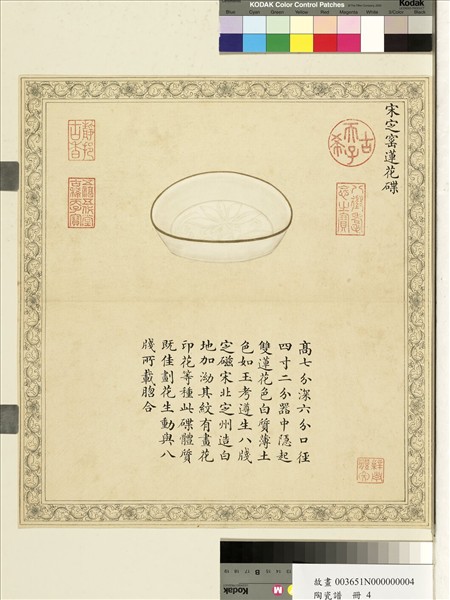 KODAK Color Control Patches
Kodak
Blue
Cyan
Green
Yellow
Red
Magenta
White
3/Color
Black
宋定窯蓮花碟
古
希
天子
八徵耄
念之寶
高七分深六分口徑
四寸二分器中隱起
雙蓮花色白質薄土
色如玉考遵生八牋
定磁宋北定州造白
地加泑其紋有畫花
印花等種此碟體質
既佳劃花生動與八
牋所載脗合
故畫 003651N000000004
陶瓷譜 冊 4